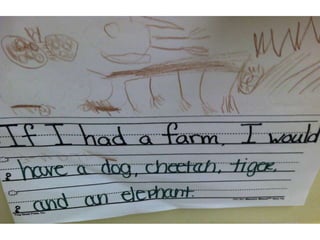 If I had a farm, I would
have a dog, cheetah, tiger,
and an elephant.